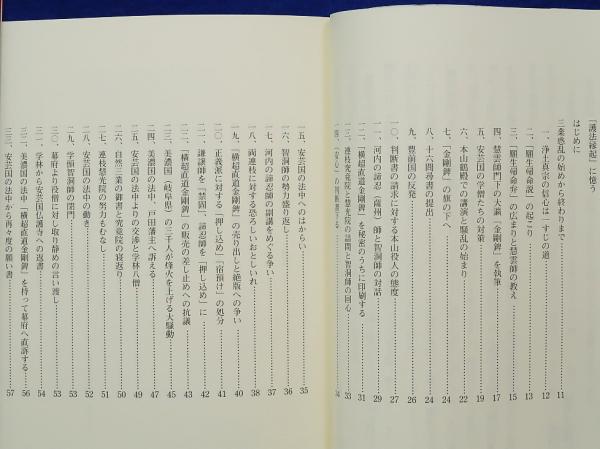 「護法縁起」に憶う
はじめに
三業惑乱の始めから終わりまで………11
一、浄土真宗の信心は一すじの道………12
二、「願生帰命説」の起こり………13
三、「願生帰命弁」の広まりと慧雲師の教え………15
四、慧雲師門下の大瀛『金剛錍』を執筆………17
五、安芸国の学僧たちの対策………19
六、本山鶴殿での講演と騒乱の始まり………22
七、『金剛錍』の旗の下へ………24
八、十六問尋書の提出………24
九、豊前国の反発………26
一〇、判断書の請求に対する本山役人の態度………27
一一、河内の諦忍（薩州）師と智洞師の対話………29
一二、『横超直道金剛錍』を秘密のうちに印刷する………31
一三、連枝究竟院と慧光院の詰問と智洞師の回心………33
34
一五、安芸国の法中へのはからい………35
一六、智洞師の勢力盛り返し………36
一七、河内の諦忍師の副講をめぐる争い………37
一八、両連枝に対する恐ろしいおとしいれ………38
一九、『横超直道金剛錍』の売り出しと絶版への争い………40
二〇、正義派に対する「押し込め」「宿預け」の処分………41
二一、謙譲師を「禁闘」、諦忍師を「押し込め」に………42
二二、『横超直道金剛錍』の販売の差し止めへの抗議………43
二三、美濃国（岐阜県）の三千人が烽火を上げる大騒動………45
二四、美濃国の法中、戸田藩主へ訴える………47
二五、安芸国の法中よりの交渉と学林八僧………49
二六、自然三業の御書と究竟院の寝返り………50
二七、連枝慧光院の努力もむなし………51
二八、安芸国の法中の動き………52
二九、学頭智洞師の閉門………53
三〇、幕府より役僧に対し取り静めの言い渡し………53
三一、学林から安芸国仏護寺への返書………54
三二、美濃国の法中『横超直道金剛錍』を持って幕府へ直訴する………56
三三、安芸国の法中から再々度の願い書………57